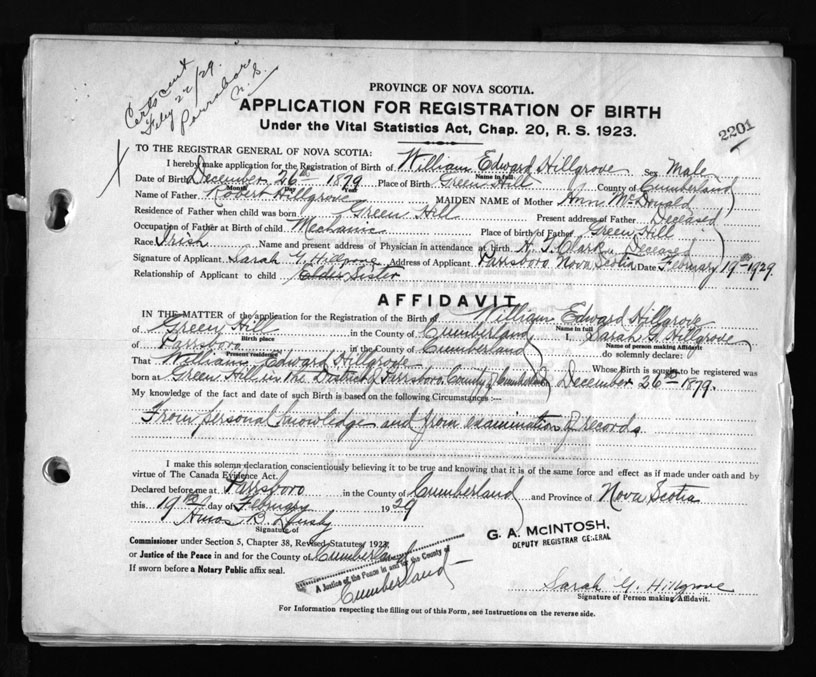 Certs sent
Feby 22/29.
Parrsboro
N. S.
PROVINCE OF NOVA SCOTIA.
APPLICATION FOR REGISTRATION OF BIRTH
Under the Vital Statistics Act, Chap. 20, R. S. 1923.
2201
TO THE REGISTRAR GENERAL OF NOVA SCOTIA:
I hereby make application for the Registration of Birth of William Edward Hillgrove Sex Male
Name in full
Date of Birth December 26th 1879 Place of Birth Green Hill County of Cumberland
Month Day Year
Name of Father Robert Hillgrove MAIDEN NAME of Mother Ann McDonald
Residence of Father when child was born Green Hill Present address of Father Deceased
Occupation of Father at Birth of child Mechanic Place of birth of Father Green Hill
Race Irish Name and present address of Physician in attendance at birth Clark Deceased
Signature of Applicant Sarah G. Hillgrove Address of Applicant Parrsboro Nova Scotia Date February 19th 1929
Relationship of Applicant to child Elder Sister
AFFIDAVIT
IN THE MATTER of the application for the Registration of the Birth of William Edward Hillgrove
Name in full
of Green Hill in the County of Cumberland I, Sarah G. Hillgrove
Birth place Name of person making Affidavit
of Parrsboro in the County of Cumberland do solemnly declare:
Present residence
That William Edward Hillgrove Whose Birth is sought to be registered was
born at Green Hill in the District of Parrsboro County of Cumberland December 26th 1879.
My knowledge of the fact and date of such Birth is based on the following Circumstances:—
From personal knowledge and from examination of records
I make this solemn declaration conscientiously believing it to be true and knowing that it is of the same force and effect as if made under oath and by
virtue of The Canada Evidence Act.
Declared before me at Parrsboro in the County of Cumberland and Province of Nova Scotia
this 19th day of February 1929
Amos B.
Signature of
G. A. McINTOSH,
DEPUTY REGISTRAR GENERAL
Commissioner under Section 5, Chapter 38, Revised Statutes 1923,
or Justice of the Peace in and for the County of Cumberland
If sworn before a Notary Public affix seal.
A Justice of the Peace in and for the County of
Cumberland
Sarah G. Hillgrove
Signature of Person making Affidavit.
For Information respecting the filling out of this Form, see Instructions on the reverse side.